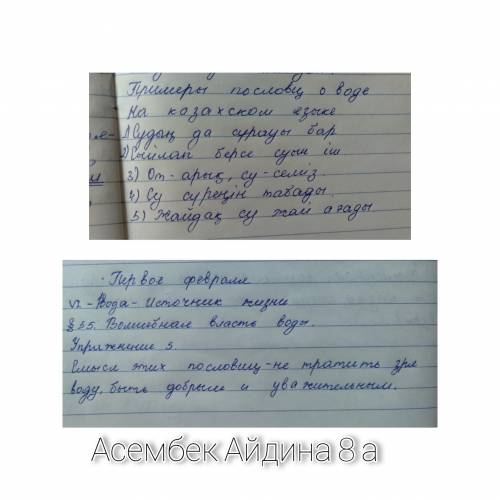 Примеры пословиц о воде
На казахском языке
1) Судың да сұрауы бар
2) Сыйлап берсе суын іш
3) От - арық, су - семіз.
4) Су сүреңін табады.
5) Жайдақ су жай ағады.
Первое февраля
VI. - Вода - Источник жизни
§ 55. Волшебная власть воды.
Упражнение 5.
Смысл этих пословиц - не тратить зря
воду, быть добрым и уважительным.
Асембек Айдина 8 а